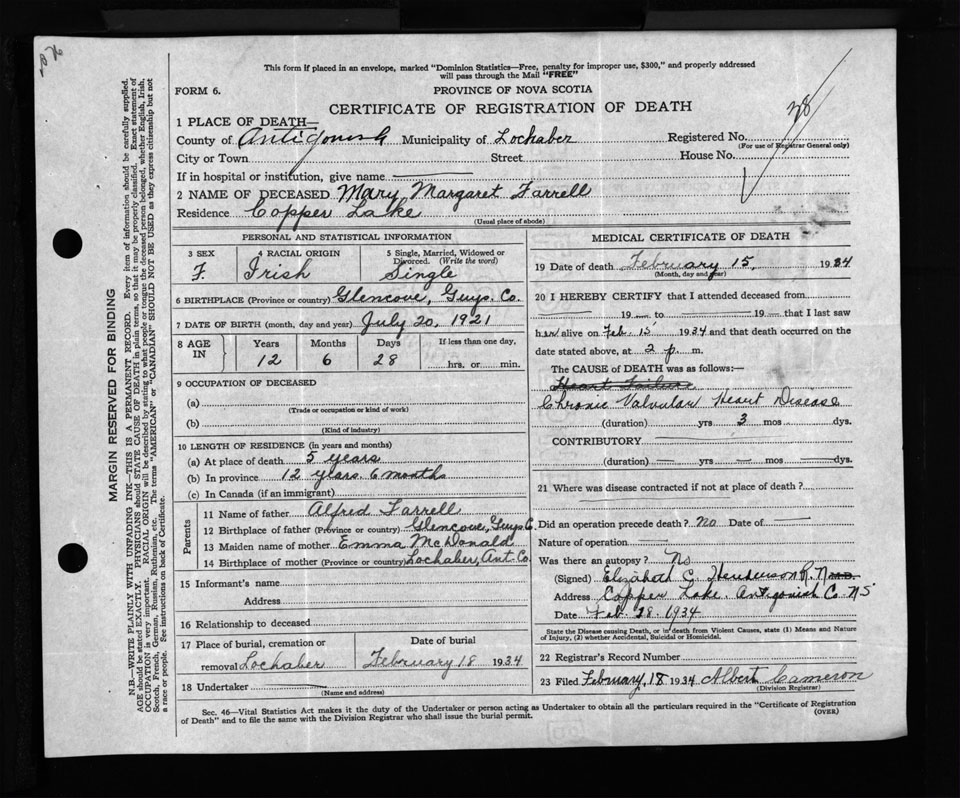 This form if placed in an envelope, marked "Dominion Statistics—Free, penalty for improper use, $300," and properly addressed
will pass through the Mail "FREE"
FORM 6.
PROVINCE OF NOVA SCOTIA
CERTIFICATE OF REGISTRATION OF DEATH
38
1 PLACE OF DEATH—
County of Antigonish Municipality of Lochaber Registered No.
(For use of Registrar General only)
City or Town Street House No.
If in hospital or institution, give name
2 NAME OF DECEASED Mary Margaret Farrell
Residence Copper Lake
(Usual place of abode)
PERSONAL AND STATISTICAL INFORMATION
3 SEX 4 RACIAL ORIGIN 5 Single, Married, Widowed or Divorced. (Write the word)
F. Irish Single
6 BIRTHPLACE (Province or country) Glencove, Guys. Co.
7 DATE OF BIRTH (month, day and year) July 20, 1921
8 AGE IN Years Months Days If less than one day,
12 6 28 hrs. or min.
9 OCCUPATION OF DECEASED
(a)
(Trade or occupation or kind of work)
(b)
(Kind of industry)
10 LENGTH OF RESIDENCE (in years and months)
(a) At place of death 5 years
(b) In province 12 years. 6 months
(c) In Canada (if an immigrant)
Parents
11 Name of father Alfred Farrell
12 Birthplace of father (Province or country) Glencove, Guys C.
13 Maiden name of mother Emma McDonald
14 Birthplace of mother (Province or country) Lochaber, Ant. Co.
15 Informant's name
Address
16 Relationship to deceased
17 Place of burial, cremation or Date of burial
removal Lochaber February 18 1934
18 Undertaker
(Name and address)
MEDICAL CERTIFICATE OF DEATH
19 Date of death February 15, 1934
(Month, day and year)
20 I HEREBY CERTIFY that I attended deceased from
19 to 19 that I last saw
her alive on Feb. 15 1934 and that death occurred on the
date stated above, at 2 p. m.
The CAUSE of DEATH was as follows:—
Heart Failure
Chronic Valvular Heart Disease
(duration) yrs 3 mos dys.
CONTRIBUTORY
(duration) yrs mos dys.
21 Where was disease contracted if not at place of death?
Did an operation precede death? No Date of
Nature of operation
Was there an autopsy? No
(Signed) Elizabeth G. Henderson R.N. M.D.
Address Copper Lake Antigonish Co NS
Date Feb 18 1934
State the Disease causing Death, or in death from Violent Causes, state (1) Means and Nature
of Injury, (2) whether Accidental, Suicidal or Homicidal.
22 Registrar's Record Number
23 Filed February, 18 1934 Albert Cameron
(Division Registrar)
Sec. 46—Vital Statistics Act makes it the duty of the Undertaker or person acting as Undertaker to obtain all the particulars required in the "Certificate of Registration
of Death" and to file the same with the Division Registrar who shall issue the burial permit.
(OVER)
MARGIN RESERVED FOR BINDING
N.B.—WRITE PLAINLY WITH UNFADING INK—THIS IS A PERMANENT RECORD. Every item of information should be carefully supplied.
AGE should be stated EXACTLY. PHYSICIANS should STATE CAUSE OF DEATH in plain terms, so that it may be properly classified. Exact statement of
OCCUPATION is very important. RACIAL ORIGIN will be described by stating to what people or tongue the deceased person belonged, whether English, Irish,
Scotch, French, German, Russian, Ruthenian, etc. The terms "AMERICAN" or "CANADIAN" SHOULD NOT BE USED as they express citizenship but not
a race or people. See instructions on back of Certificate.